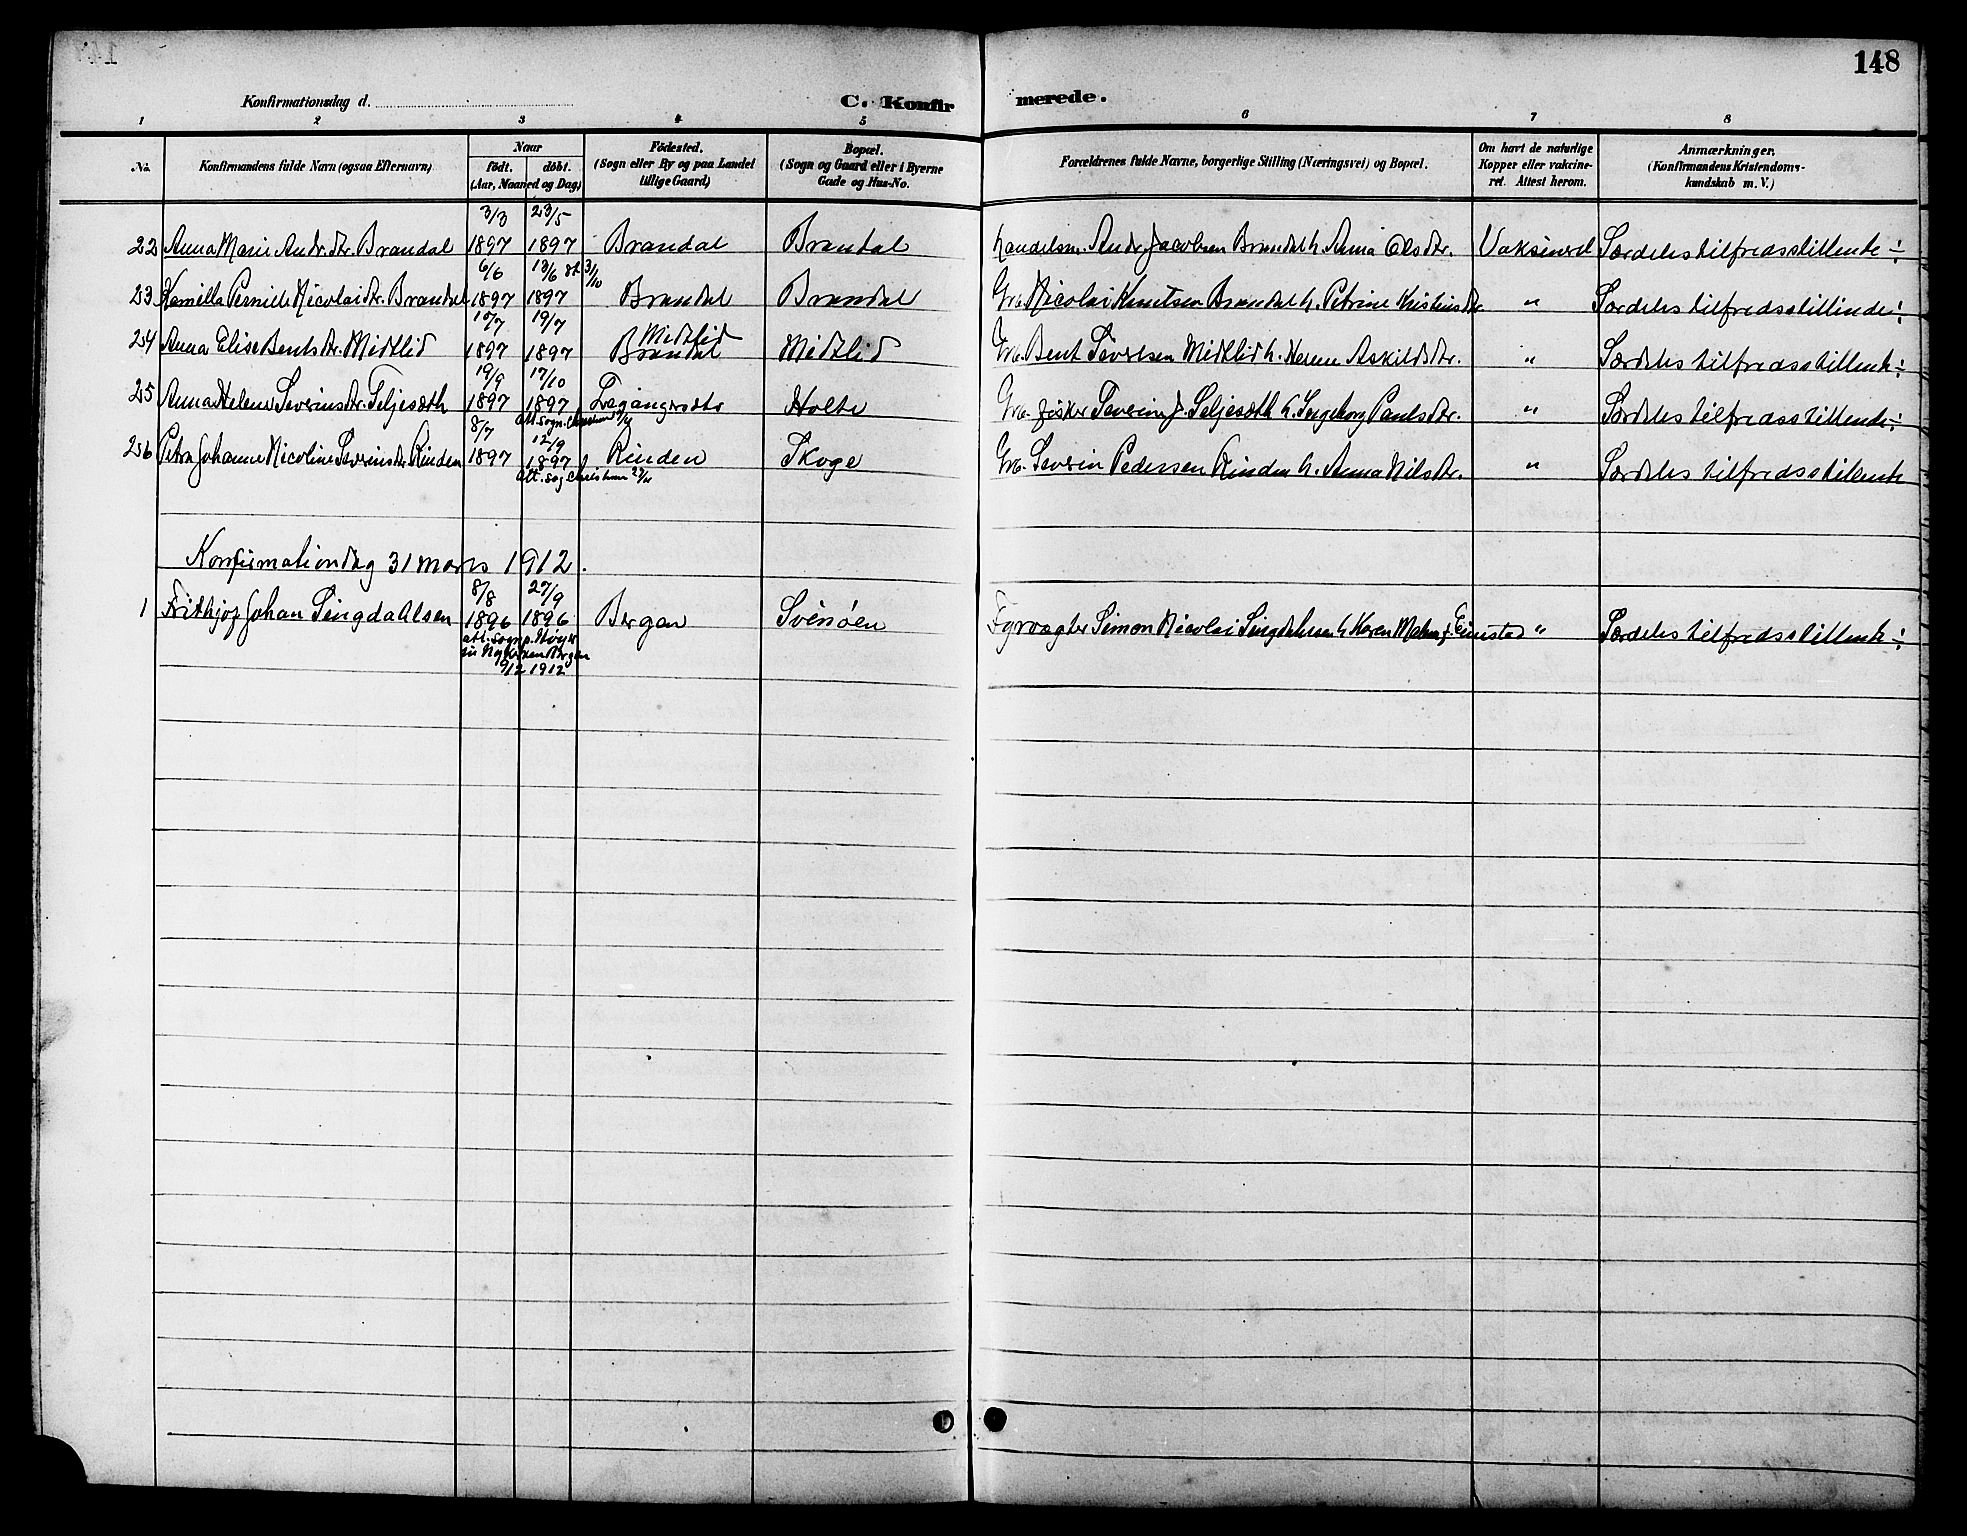 148
Konfirmationsdag d.
C. Konfirmerede.
1 2 3 4 5 6 7 8
No. Konfirmandens fulde Navn (ogsaa Efternavn) Naar født. døbt. (Aar, Maaned og Dag) Fødested. (Sogn eller By og paa Landet tillige Gaard) Bopæl. (Sogn og Gaard eller i Byerne Gade og Hus-No. Forældrenes fulde Navne, borgerlige Stilling (Næringsvei) og Bopæl. Om havt de naturlige Kopper eller vakcineret. Attest herom. Anmærkninger, (Konfirmandens Kristendomskundskab m. V.)
3/3 23/5
22 Anna Marie Andr.dtr. Brandal 1897 1897 Brandal Brandal Handelsm. Andr. Jacobsen Brandal h. Anna Olsdtr. Vaksinerd Særdeles tilfredsstillende ÷
6/6 13/6 st 3/10
23 Kamilla Pernille Nicolaidtr. Brandal 1897 1897 Brandal Brandal Grb. Nicolai Knutsen Brandal h. Petrine Kristinsdtr. " Særdeles tilfredsstillende ÷
10/7 19/7 Midtlid
24 Anna Elise Bentsdtr. Midtlid 1897 1897 Brandal Midtlid Grb. Bent Severesen Midtlid h. Hanna Askildsdtr. " Særdeles tilfredsstillende ÷
19/9 17/10
25 Anna Helene Severinsdtr. Seljesæth 1897 1897 Holte Grb. fisker Severin J. Seljesæth h. Ingeborg Paulsdtr. " Særdeles tilfredsstillende ÷
8/7 12/9
26 Petra Johanne Nicoline Severinsdtr. Rinden 1897 1897 Rinden Skoge Grb. Severin Pedersen Rinden h. Anna Nilsdtr. " Særdeles tilfredsstillende
Konfirmationsdag 31 mars 1912.
8/8 27/9
1 Frithjof Johan Singdahlsen 1896 1896 Bergen Svinøen Fyrvogter Simon Nicolai Singdahlsen h. Karen Malen f. Eimstad " Særdeles tilfredsstillende ÷
att. sognep. Høyer
Nykirken Bergen
9/12 1912